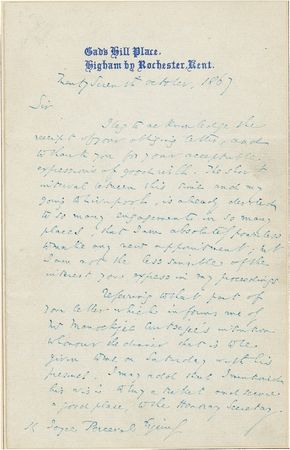 Gad's Hill Place,
Higham by Rochester, Kent.
Twenty Seventh October, 1867
Sir
I beg to acknowledge the
receipt of your obliging letter, and
to thank you for your acceptable
expressions of goodwill. The short
interval between this time and my
going to Liverpool, is already devoted
to so many engagements in so many
places, that I am absolutely powerless
to make any new appointment. But
I am not the less sensible of the
interest you express in my proceedings
Referring to that part of
your letter which informs me of
Mr Manockjee Cursetjee's intention
to honour the dinner that is to be
given to me on Saturday, with his
presence. I may add that I
his to buy a ticket and secure
a good place, to the Honorary Secretary.
Joyce